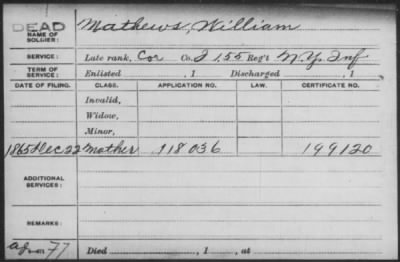 DEAD
NAME OF SOLDIER: Mathews, William
SERVICE: Late rank, Cor Co. I 155 Reg't N.Y. Inf
TERM OF SERVICE: Enlisted , 1 Discharged , 1
DATE OF FILING. CLASS. APPLICATION NO. LAW. CERTIFICATE NO.
Invalid,
Widow,
Minor,
1865 Dec 22 Mother 118036 199120
ADDITIONAL SERVICES:
REMARKS:
77 Died , 1 , at